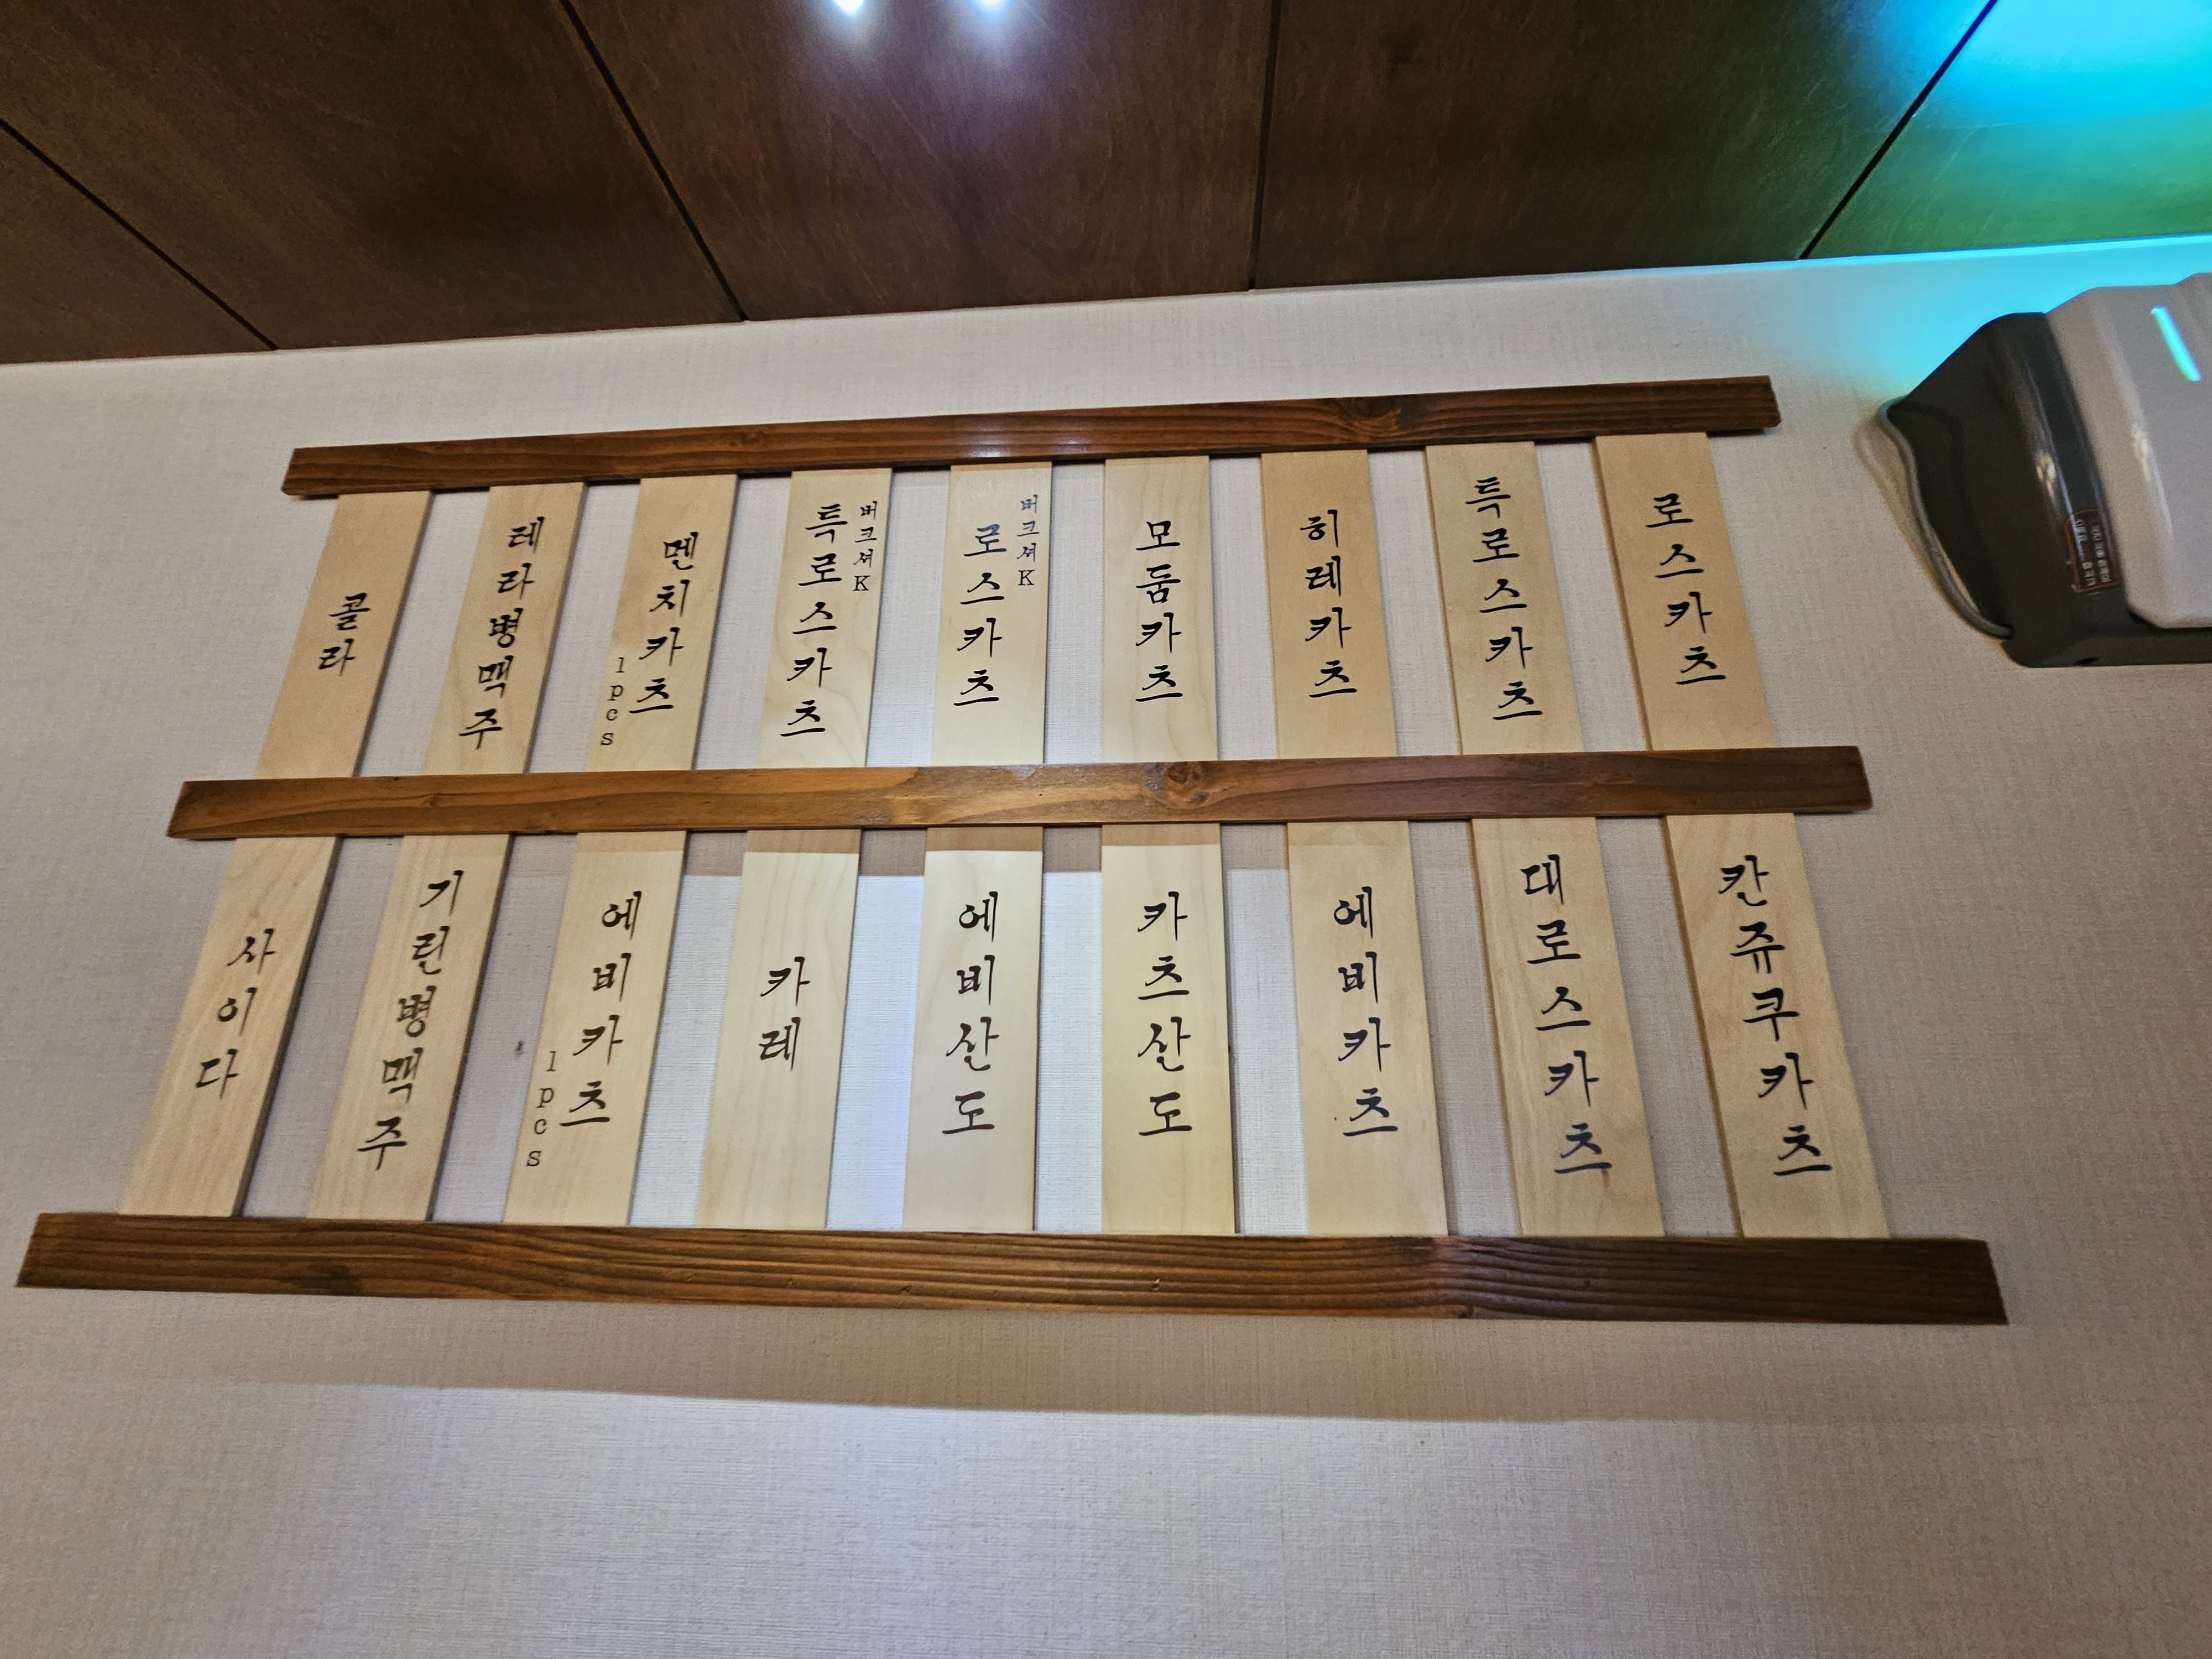 콜라
테라병맥주
멘치카츠
1pcs
특로스카츠
버크셔K
로스카츠
버크셔K
모둠카츠
히레카츠
특로스카츠
로스카츠
사이다
기린병맥주
에비카츠
1pcs
카레
에비산도
카츠산도
에비카츠
대로스카츠
칸쥬쿠카츠